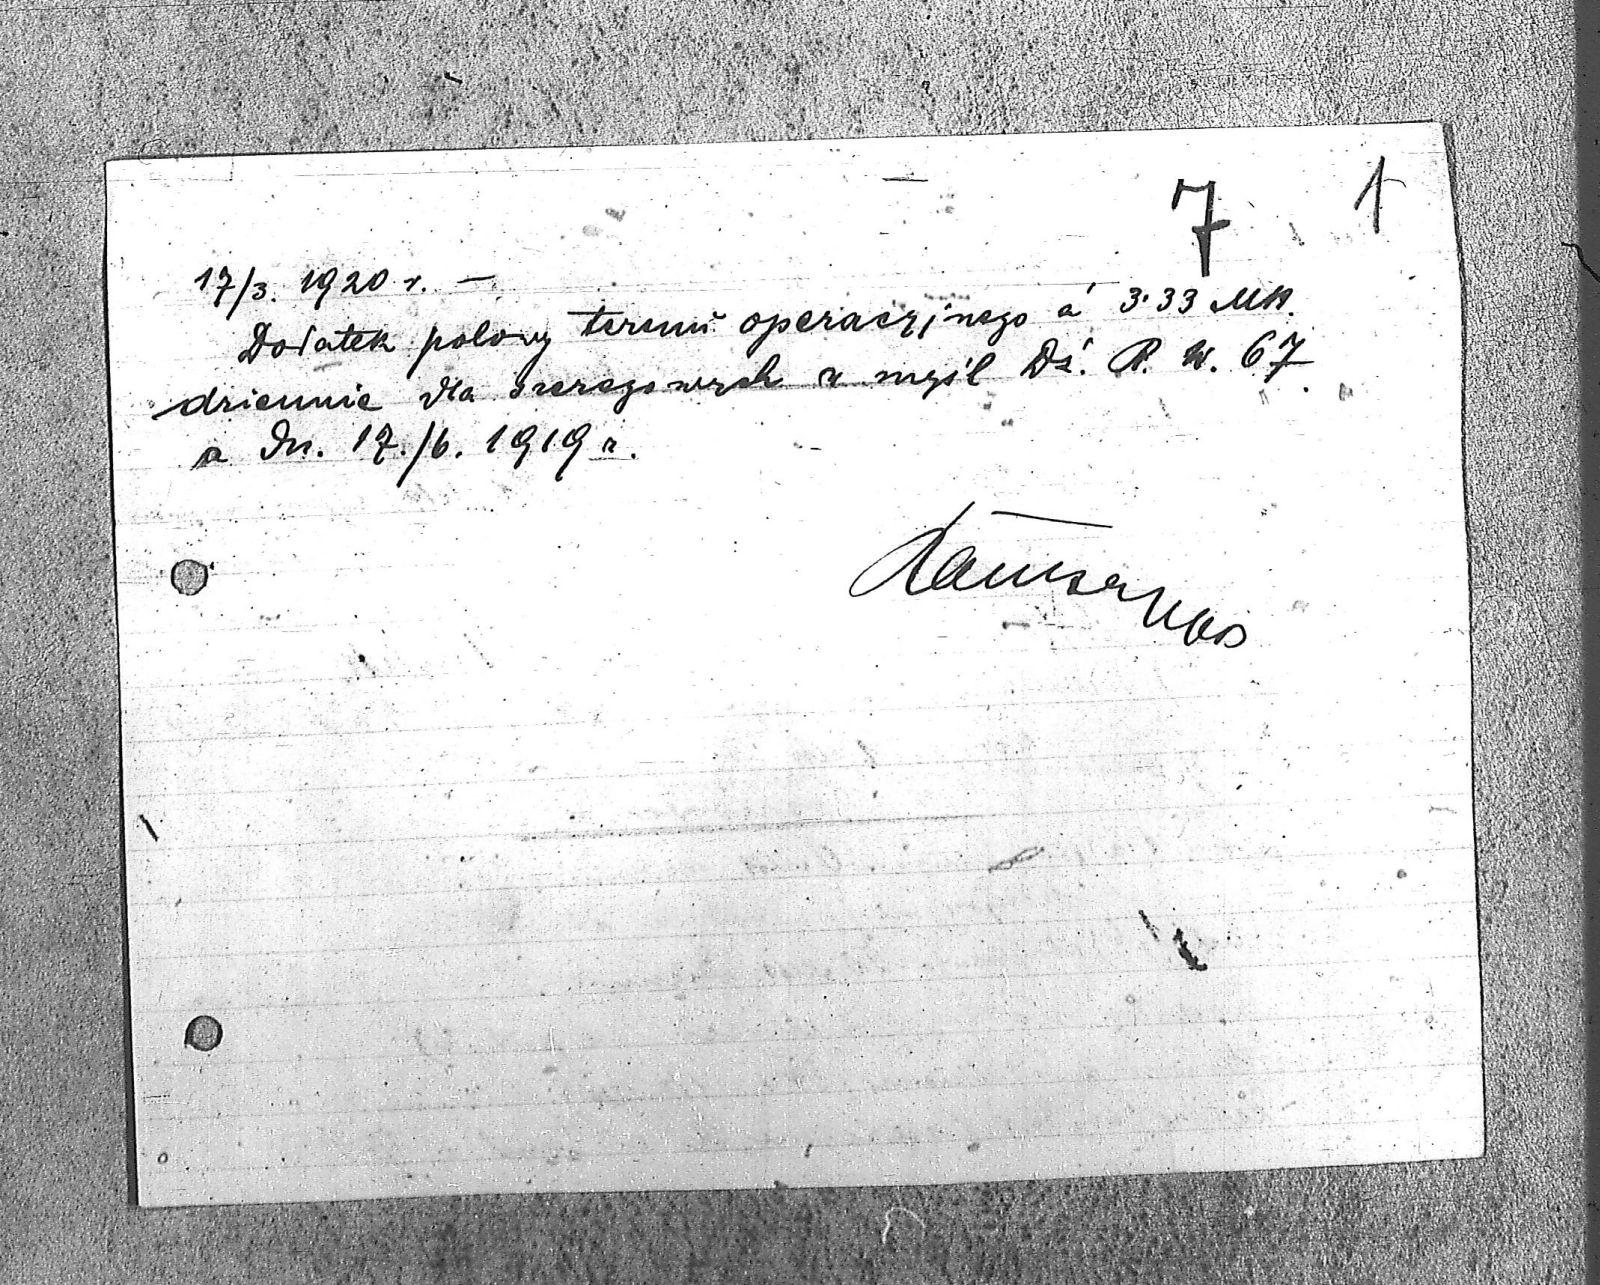 7 1
17/3. 1920 r. —
Dodatek polowy terenu operacyjnego á 3·33 Mk.
dziennie dla szeregowych w myśl Dź. R. W. 67
a dn. 17./6. 1919 r.